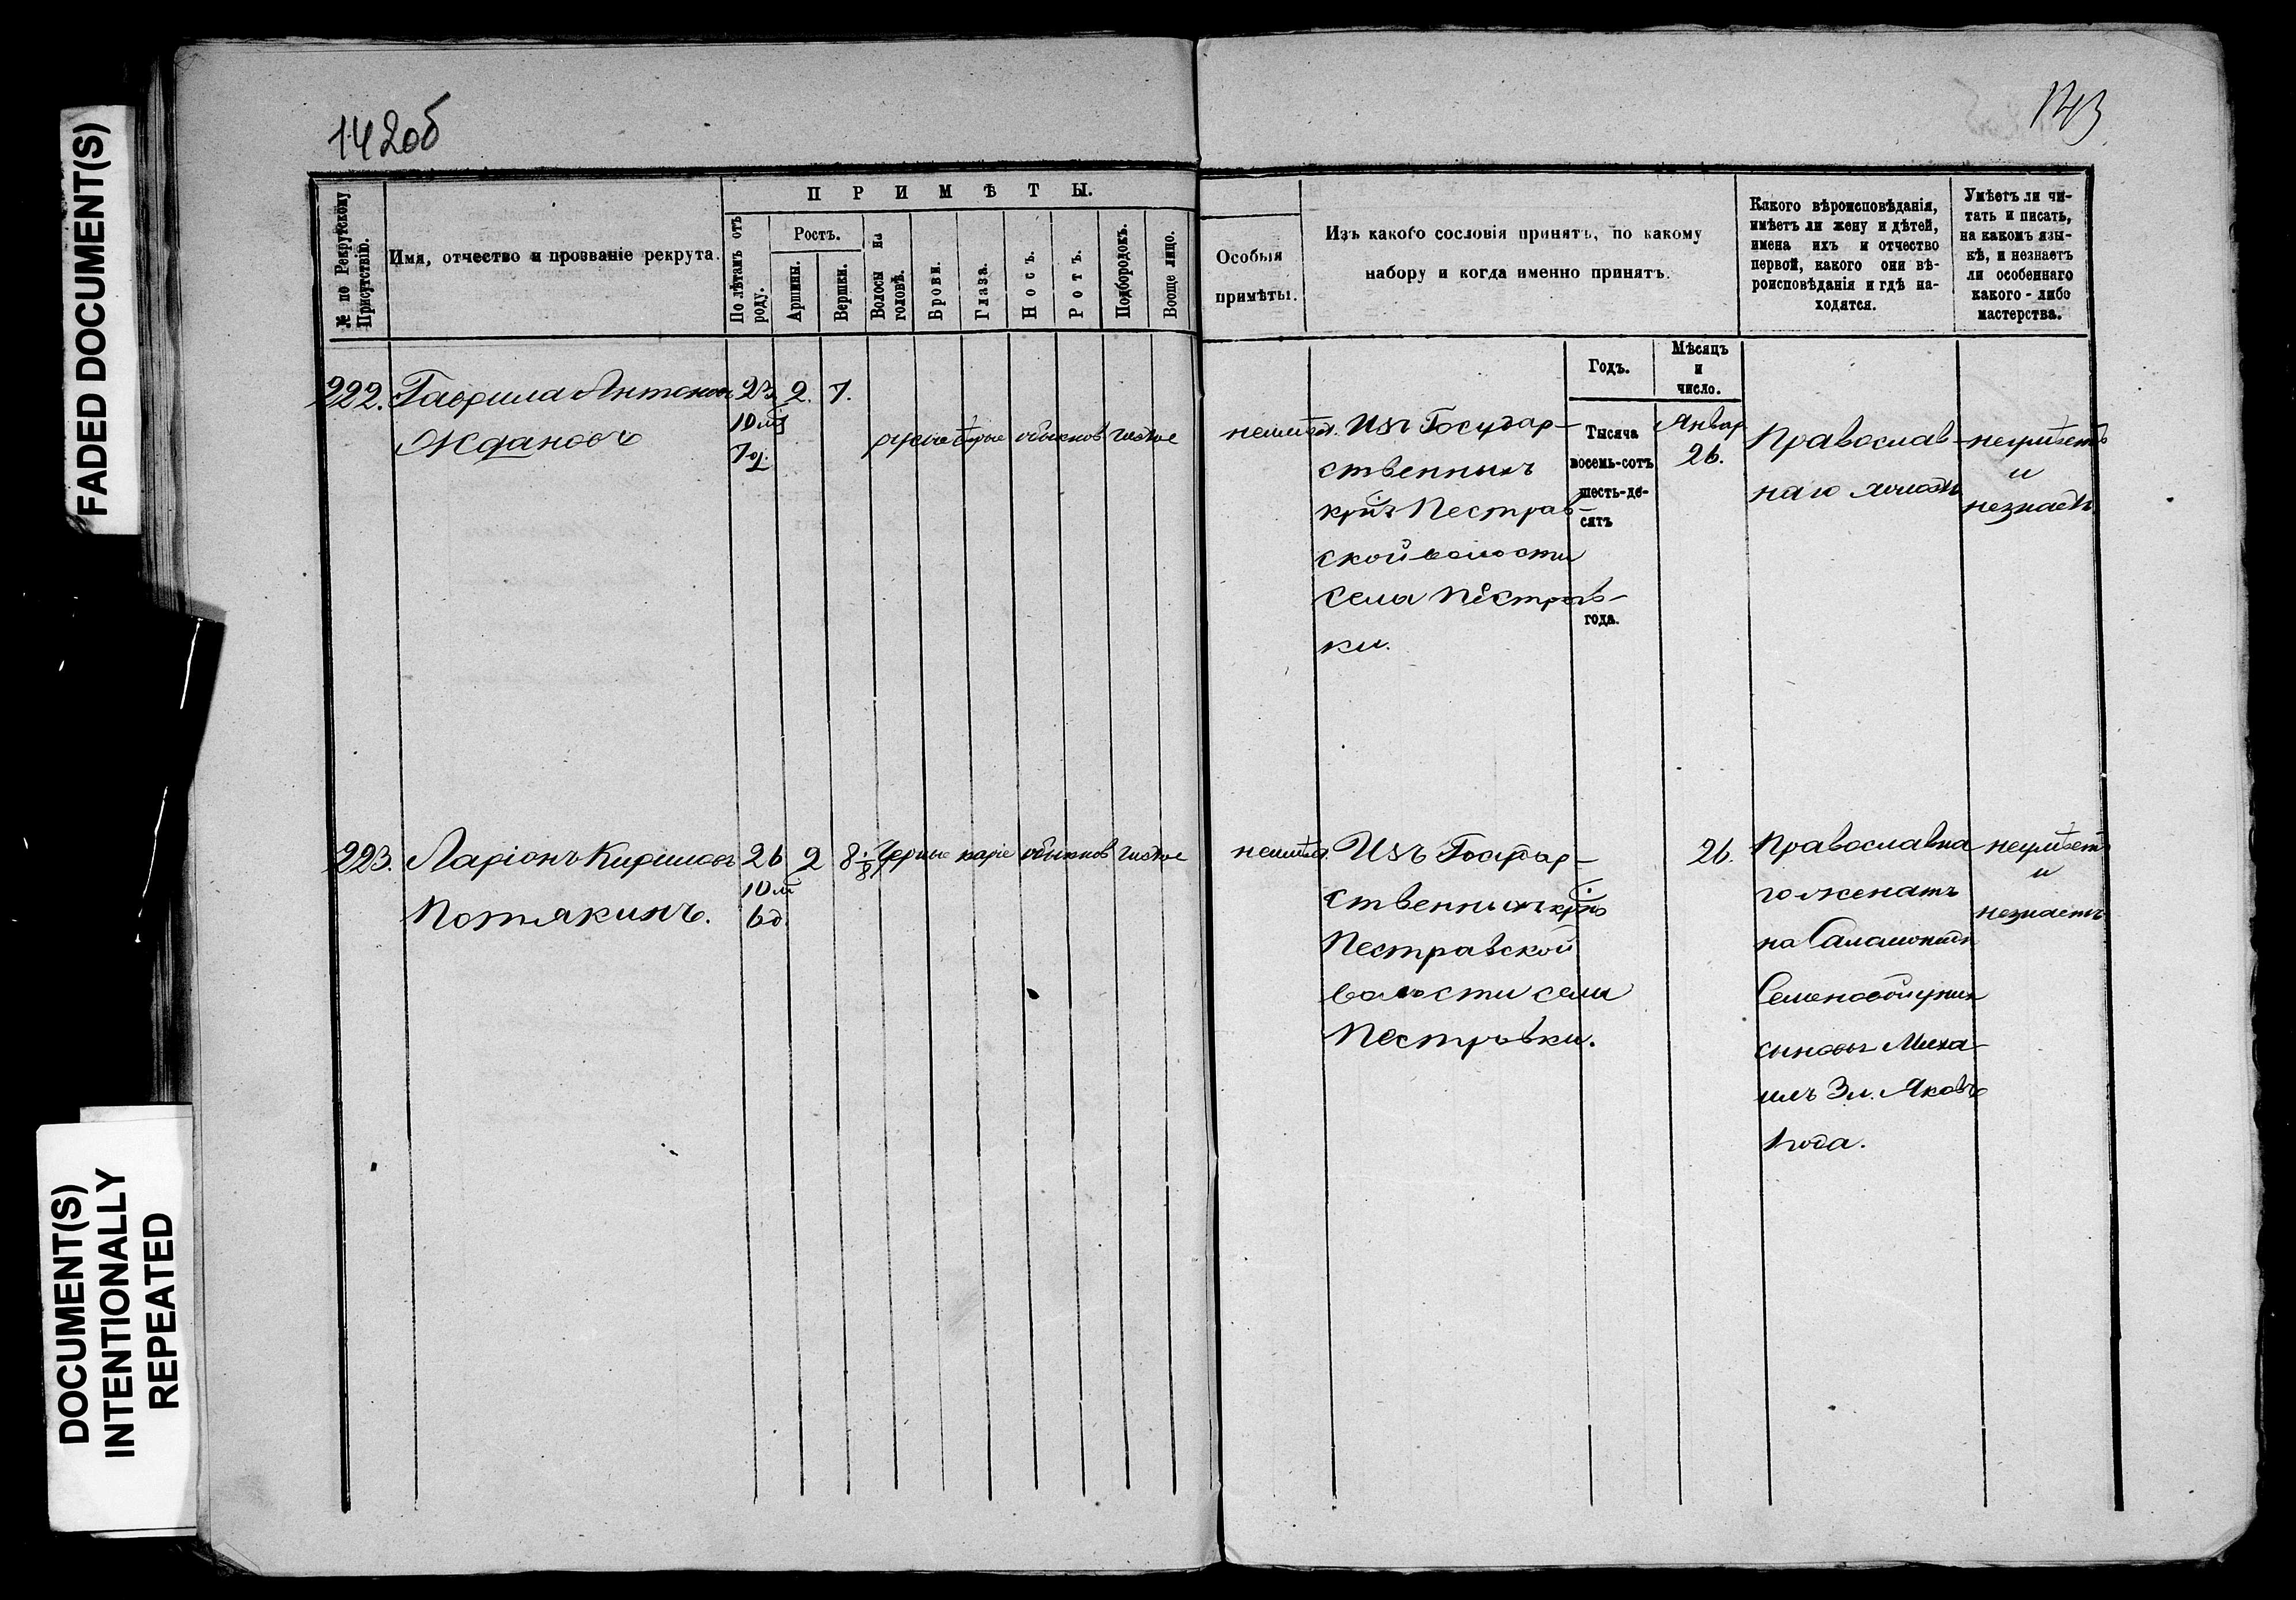 FADED DOCUMENT(S)
DOCUMENT(S)
INTENTIONALLY
REPEATED
142об
143
№ по Рекрутскому
Присутствію.
Имя, отчество и прозваніе рекрута.
ПРИМѢТЫ.
По лѣтамъ отъ
роду.
Ростъ.
Аршины.
Вершки.
Волосы на
головѣ.
Брови.
Глаза.
Носъ.
Ротъ.
Подбородокъ.
Вообще лицо.
Особыя
примѣты.
Изъ какого сословія принятъ, по какому
набору и когда именно принятъ.
Какого вѣроисповѣданія,
имѣетъ ли жену и дѣтей,
имена ихъ и отчество
первой, какого они вѣ-
роисповѣданія и гдѣ на-
ходятся.
Умѣетъ ли чи-
тать и писать,
на какомъ язы-
кѣ, и незнаетъ
ли особеннаго
какого-либо
мастерства.
Годъ.
Мѣсяцъ
и
число.
222.
Гаврила Антоновъ
Ждановъ
23
10 м
7 д.
2.
7.
русые
сѣрые
обыкнов
чистое
неимѣет.
Изъ Государ-
ственныхъ
кр. Пестрав-
ской волости
села Пестрав-
ки.
Тысяча
восемь-сотъ
шесть-де-
сятъ
года.
Январ
26.
Православ-
наго холостъ
неумѣетъ
и
незнаетъ.
223.
Ларіонъ Кириловъ
Потякинъ.
26
10 м
6 д.
2
8 1/8
Черные
каріе
обыкнов
чистое
неимѣет.
Изъ Государ-
ственныхъ кр.
Пестравской
волости села
Пестравки.
26.
Православна-
го женатъ
на Саламонид
Семеновой у них
сыновья Миха-
илъ 3 л. Яковъ
1 года.
неумѣетъ
и
незнаетъ.